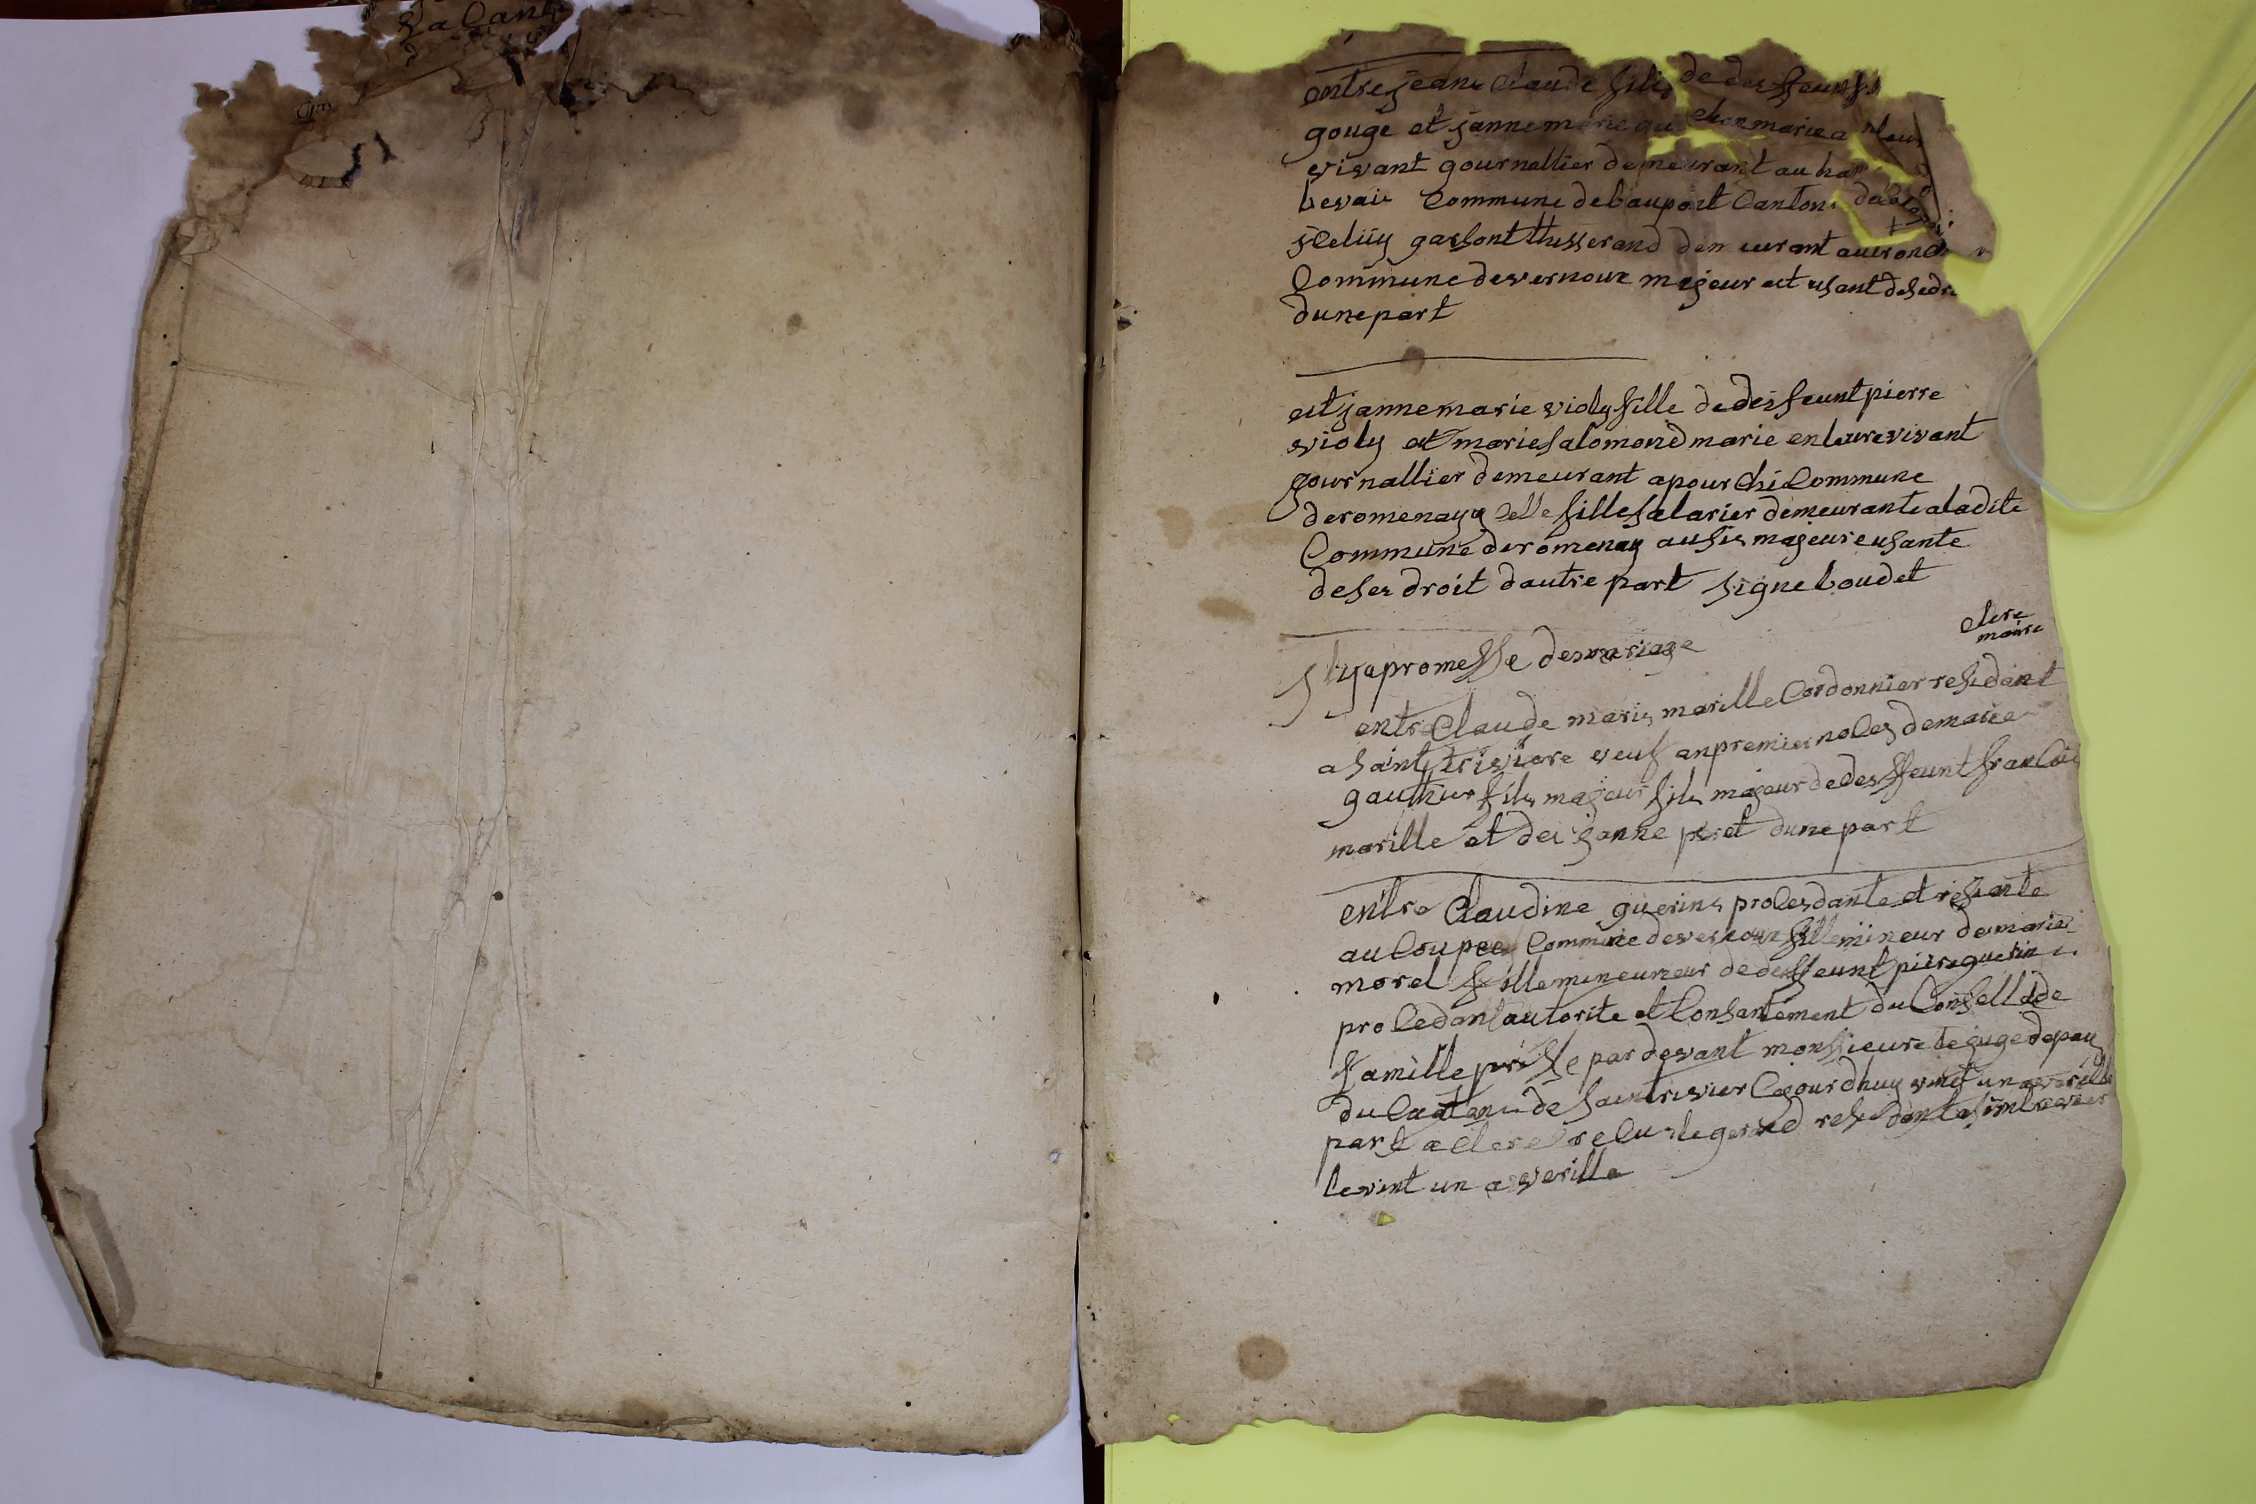 La Cant
entre jean Claude fils de desffeunt
gouge et janne marie chon marie a leur
vivant gournallier demeurant au ha
bevai Commune de baupont Canton
jCeluy garsont thisserand demeurant au ronde
Commune de vernoux majeur et usant de sedr
dune part
et janne marie violy fille de deffeunt pierre
violy et marie salomond marie en leure vivant
gournallier demeurant a pourchi Commune
de romenay Celle fille salarier demeurante a ladite
Commune de romenay ausis majeure usante
de ses droit dautre part signe boudet
maire
il y a promesse de mariage
entre Claude marie marille Cordonnier residant
a saint trivière veuf an premier noCes de marie
gauthier fils majeur fils majeur de desffeunt franCoi
marille et dei janne peret dune part
entre Claudine guerins proCesdante et resiante
au Coupee Commune de vernoux fille mineur de marie
morel fille mineureur de deffeunt piere guerin
proCedant autorite et Consantement du Consell de
famille prisse par devant monssieure le juge de paix
du Canton de saintrivier Cejourdhuy vint un averille
part a Clere reCu le gerand residant a sintrivier
le vint un a verille